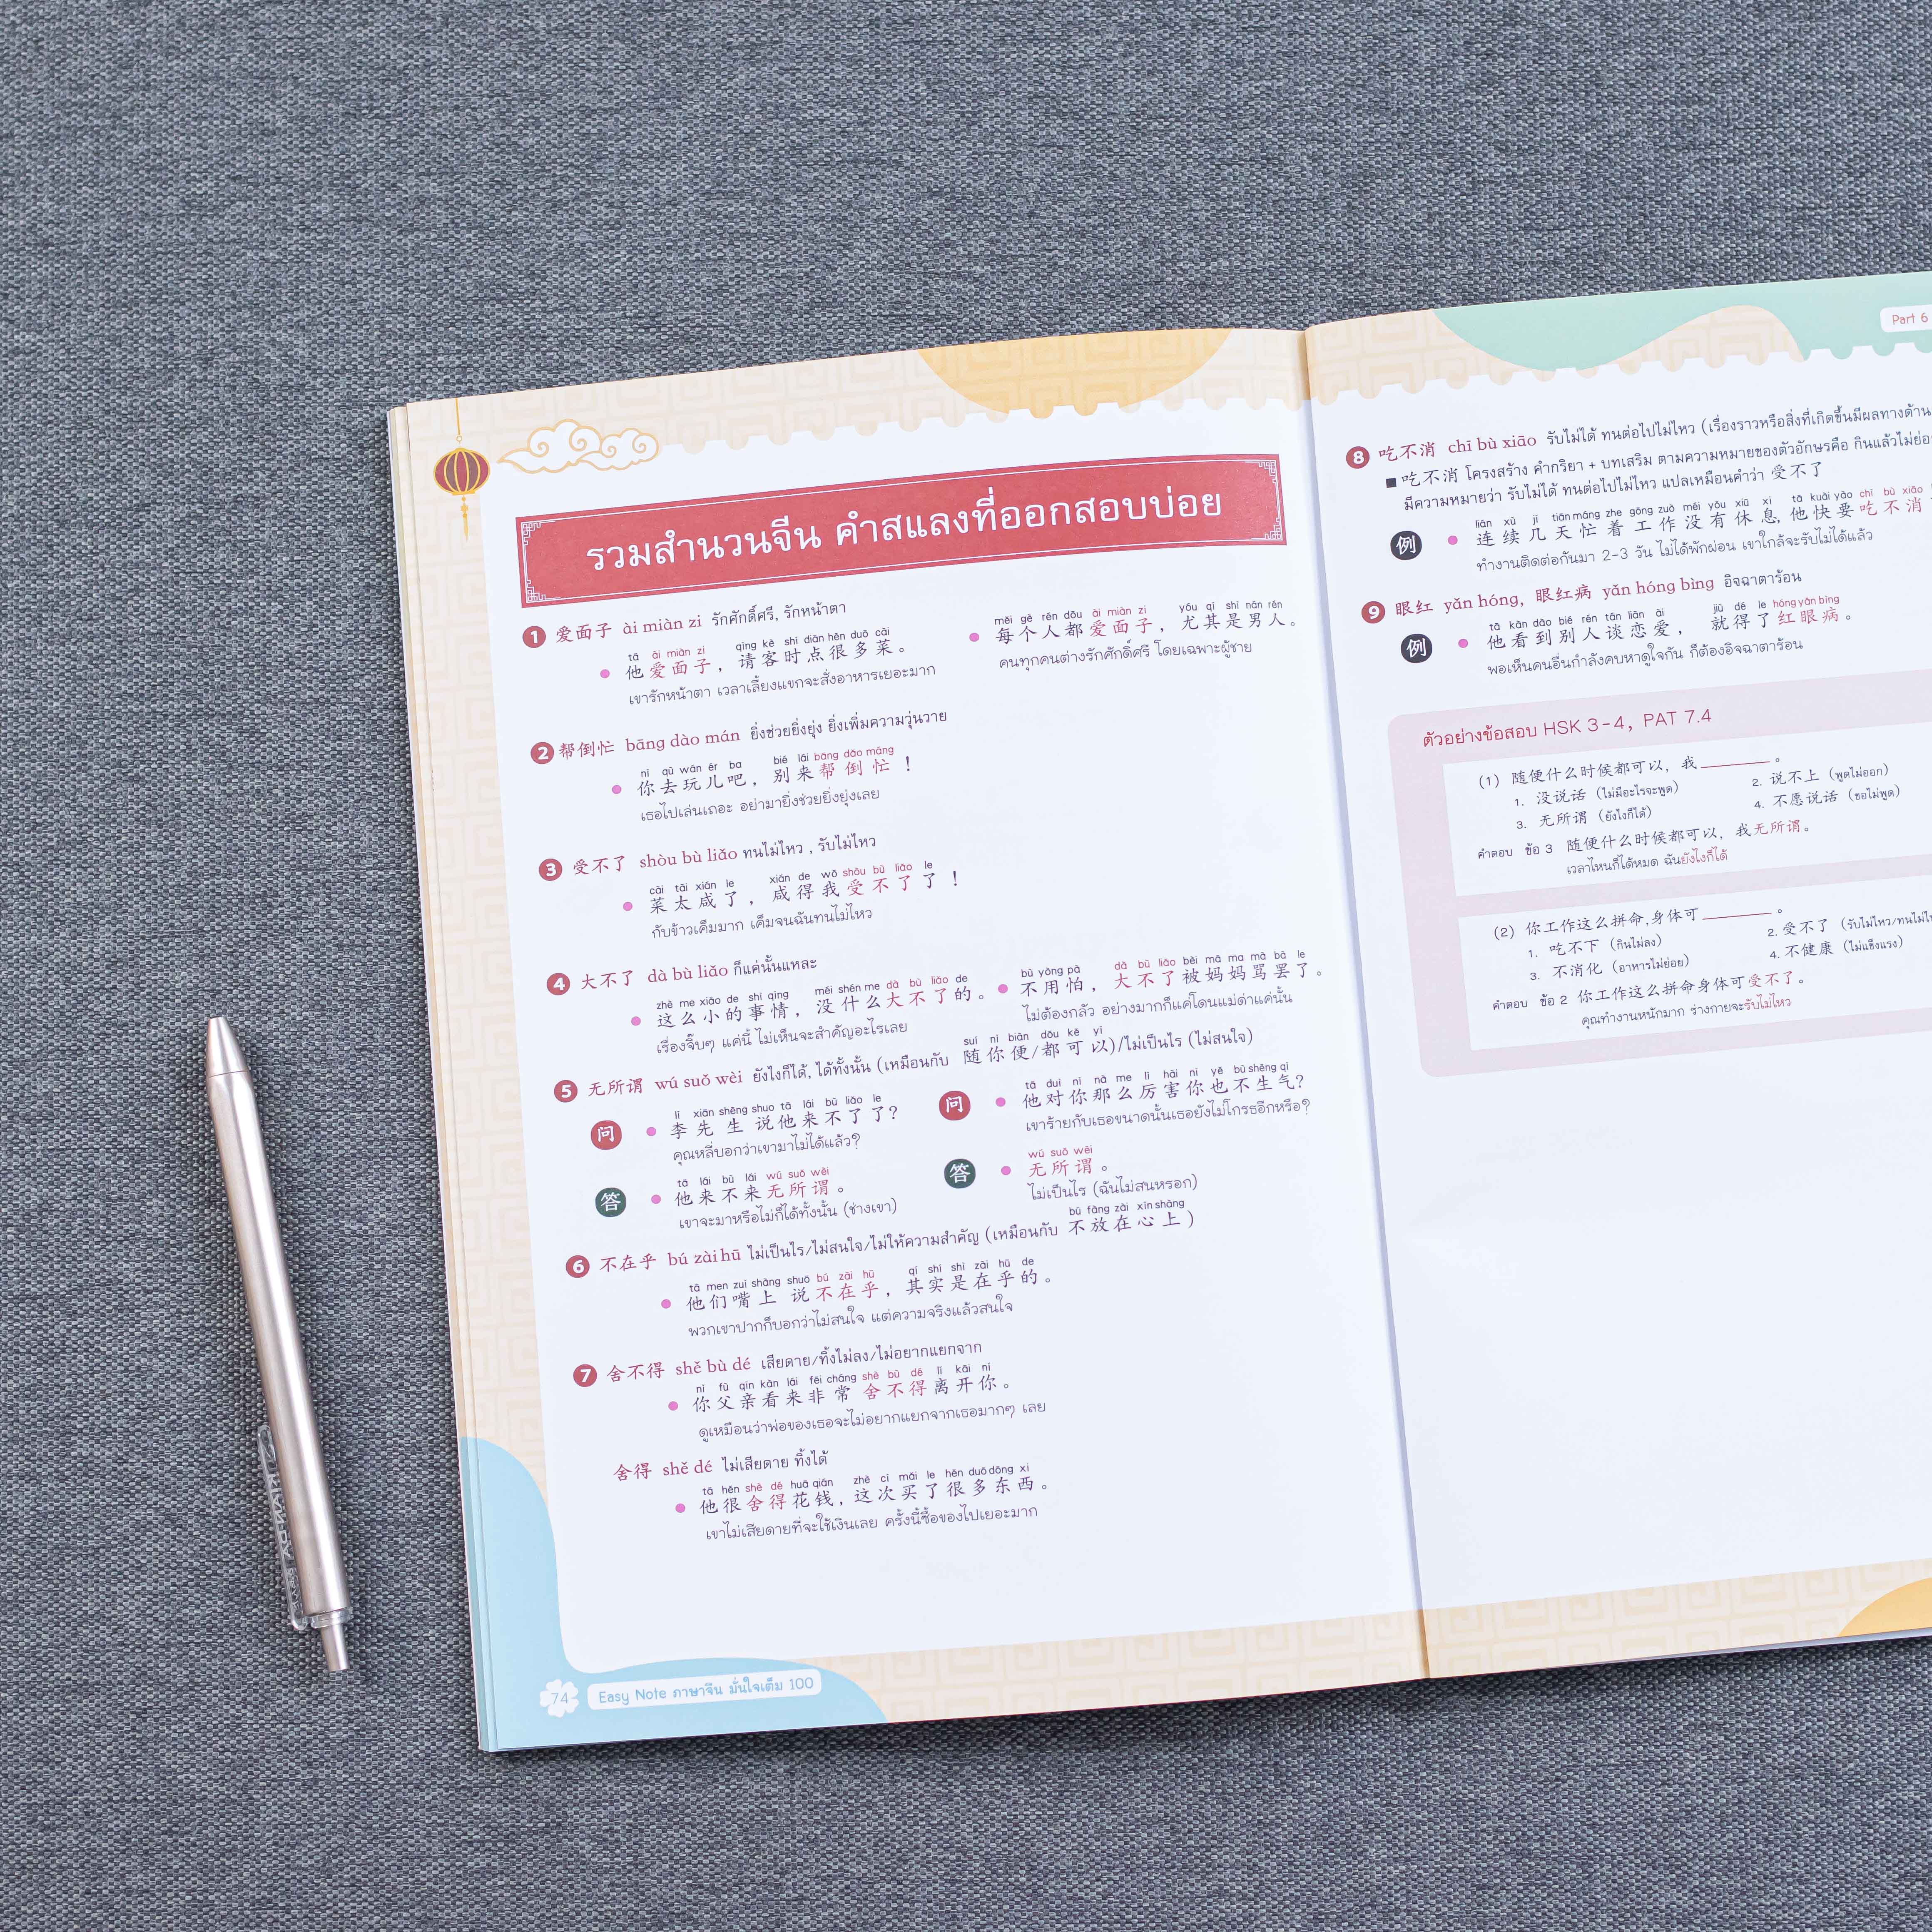 รวมสำนวนจีน คำสแลงที่ออกสอบบ่อย
1 爱面子 ài miàn zi รักศักดิ์ศรี, รักหน้าตา
tā ài miàn zi qǐng kè shí diǎn hěn duō cài
他爱面子，请客时点很多菜。
เขารักหน้าตา เวลาเลี้ยงแขกจะสั่งอาหารเยอะมาก
měi gè rén dōu ài miàn zi yóu qí shì nán rén
每个人都爱面子，尤其是男人。
คนทุกคนต่างรักศักดิ์ศรี โดยเฉพาะผู้ชาย
2 帮倒忙 bāng dào mán ยิ่งช่วยยิ่งยุ่ง ยิ่งเพิ่มความวุ่นวาย
nǐ qù wán ér ba bié lái bāng dào máng
你去玩儿吧，别来帮倒忙！
เธอไปเล่นเถอะ อย่ามายิ่งช่วยยิ่งยุ่งเลย
3 受不了 shòu bù liǎo ทนไม่ไหว , รับไม่ไหว
cài tài xián le xián de wǒ shòu bù liǎo le
菜太咸了，咸得我受不了了！
กับข้าวเค็มมาก เค็มจนฉันทนไม่ไหว
4 大不了 dà bù liǎo ก็แค่นั้นแหละ
zhè me xiǎo de shì qing méi shén me dà bù liǎo de
这么小的事情，没什么大不了的。
เรื่องจิ๊บๆ แค่นี้ ไม่เห็นจะสำคัญอะไรเลย
bù yòng pà dà bù liǎo bèi mā ma mà bà le
不用怕，大不了被妈妈骂罢了。
ไม่ต้องกลัว อย่างมากก็แค่โดนแม่ด่าแค่นั้น
5 无所谓 wú suǒ wèi ยังไงก็ได้, ได้ทั้งนั้น (เหมือนกับ 随你便/都可以)/ไม่เป็นไร (ไม่สนใจ)
suí nǐ biàn dōu kě yǐ
问
lǐ xiān shēng shuo tā lái bù liǎo le
李先生说他来不了了?
คุณหลี่บอกว่าเขามาไม่ได้แล้ว?
答
tā lái bù lái wú suǒ wèi
他来不来无所谓。
เขาจะมาหรือไม่ก็ได้ทั้งนั้น (ช่างเขา)
问
tā duì nǐ nà me lì hài nǐ yě bù shēng qì
他对你那么厉害你也不生气?
เขาร้ายกับเธอขนาดนั้นเธอยังไม่โกรธอีกหรือ?
答
wú suǒ wèi
无所谓。
ไม่เป็นไร (ฉันไม่สนหรอก)
6 不在乎 bú zài hū ไม่เป็นไร/ไม่สนใจ/ไม่ให้ความสำคัญ (เหมือนกับ 不放在心上)
bú fàng zài xīn shàng
tā men zuǐ shàng shuō bú zài hū qí shí shì zài hū de
他们嘴上说不在乎，其实是在乎的。
พวกเขาปากก็บอกว่าไม่สนใจ แต่ความจริงแล้วสนใจ
7 舍不得 shě bù dé เสียดาย/ทิ้งไม่ลง/ไม่อยากแยกจาก
nǐ fù qīn kàn lái fēi cháng shě bù dé lí kāi nǐ
你父亲看来非常舍不得离开你。
ดูเหมือนว่าพ่อของเธอจะไม่อยากแยกจากเธอมากๆ เลย
舍得 shě dé ไม่เสียดาย ทิ้งได้
tā hěn shě dé huā qián zhè cì mǎi le hěn duō dōng xi
他很舍得花钱，这次买了很多东西。
เขาไม่เสียดายที่จะใช้เงินเลย ครั้งนี้ซื้อของไปเยอะมาก
74 Easy Note ภาษาจีน มั่นใจเต็ม 100
Part 6
8 吃不消 chī bù xiāo รับไม่ได้ ทนต่อไปไม่ไหว (เรื่องราวหรือสิ่งที่เกิดขึ้นมีผลทางด้าน
吃不消 โครงสร้าง คำกริยา + บทเสริม ตามความหมายของตัวอักษรคือ กินแล้วไม่ย่อ
มีความหมายว่า รับไม่ได้ ทนต่อไปไม่ไหว แปลเหมือนคำว่า 受不了
例
lián xù jǐ tiān máng zhe gōng zuò méi yǒu xiū xi tā kuài yào chī bù xiāo
连续几天忙着工作没有休息, 他快要吃不消
ทำงานติดต่อกันมา 2-3 วัน ไม่ได้พักผ่อน เขาใกล้จะรับไม่ได้แล้ว
9 眼红 yǎn hóng, 眼红病 yǎn hóng bìng อิจฉาตาร้อน
例
tā kàn dào bié rén tán liàn ài jiù dé le hóng yǎn bìng
他看到别人谈恋爱，就得了红眼病。
พอเห็นคนอื่นกำลังคบหาดูใจกัน ก็ต้องอิจฉาตาร้อน
ตัวอย่างข้อสอบ HSK 3-4, PAT 7.4
(1) 随便什么时候都可以，我________。
1. 没说话 (ไม่มีอะไรจะพูด) 2. 说不上 (พูดไม่ออก)
3. 无所谓 (ยังไงก็ได้) 4. 不愿说话 (ขอไม่พูด)
คำตอบ ข้อ 3 随便什么时候都可以，我无所谓。
เวลาไหนก็ได้หมด ฉันยังไงก็ได้
(2) 你工作这么拼命,身体可________。
1. 吃不下 (กินไม่ลง) 2. 受不了 (รับไม่ไหว/ทนไม่ไ
3. 不消化 (อาหารไม่ย่อย) 4. 不健康 (ไม่แข็งแรง)
คำตอบ ข้อ 2 你工作这么拼命身体可受不了。
คุณทำงานหนักมาก ร่างกายจะรับไม่ไหว